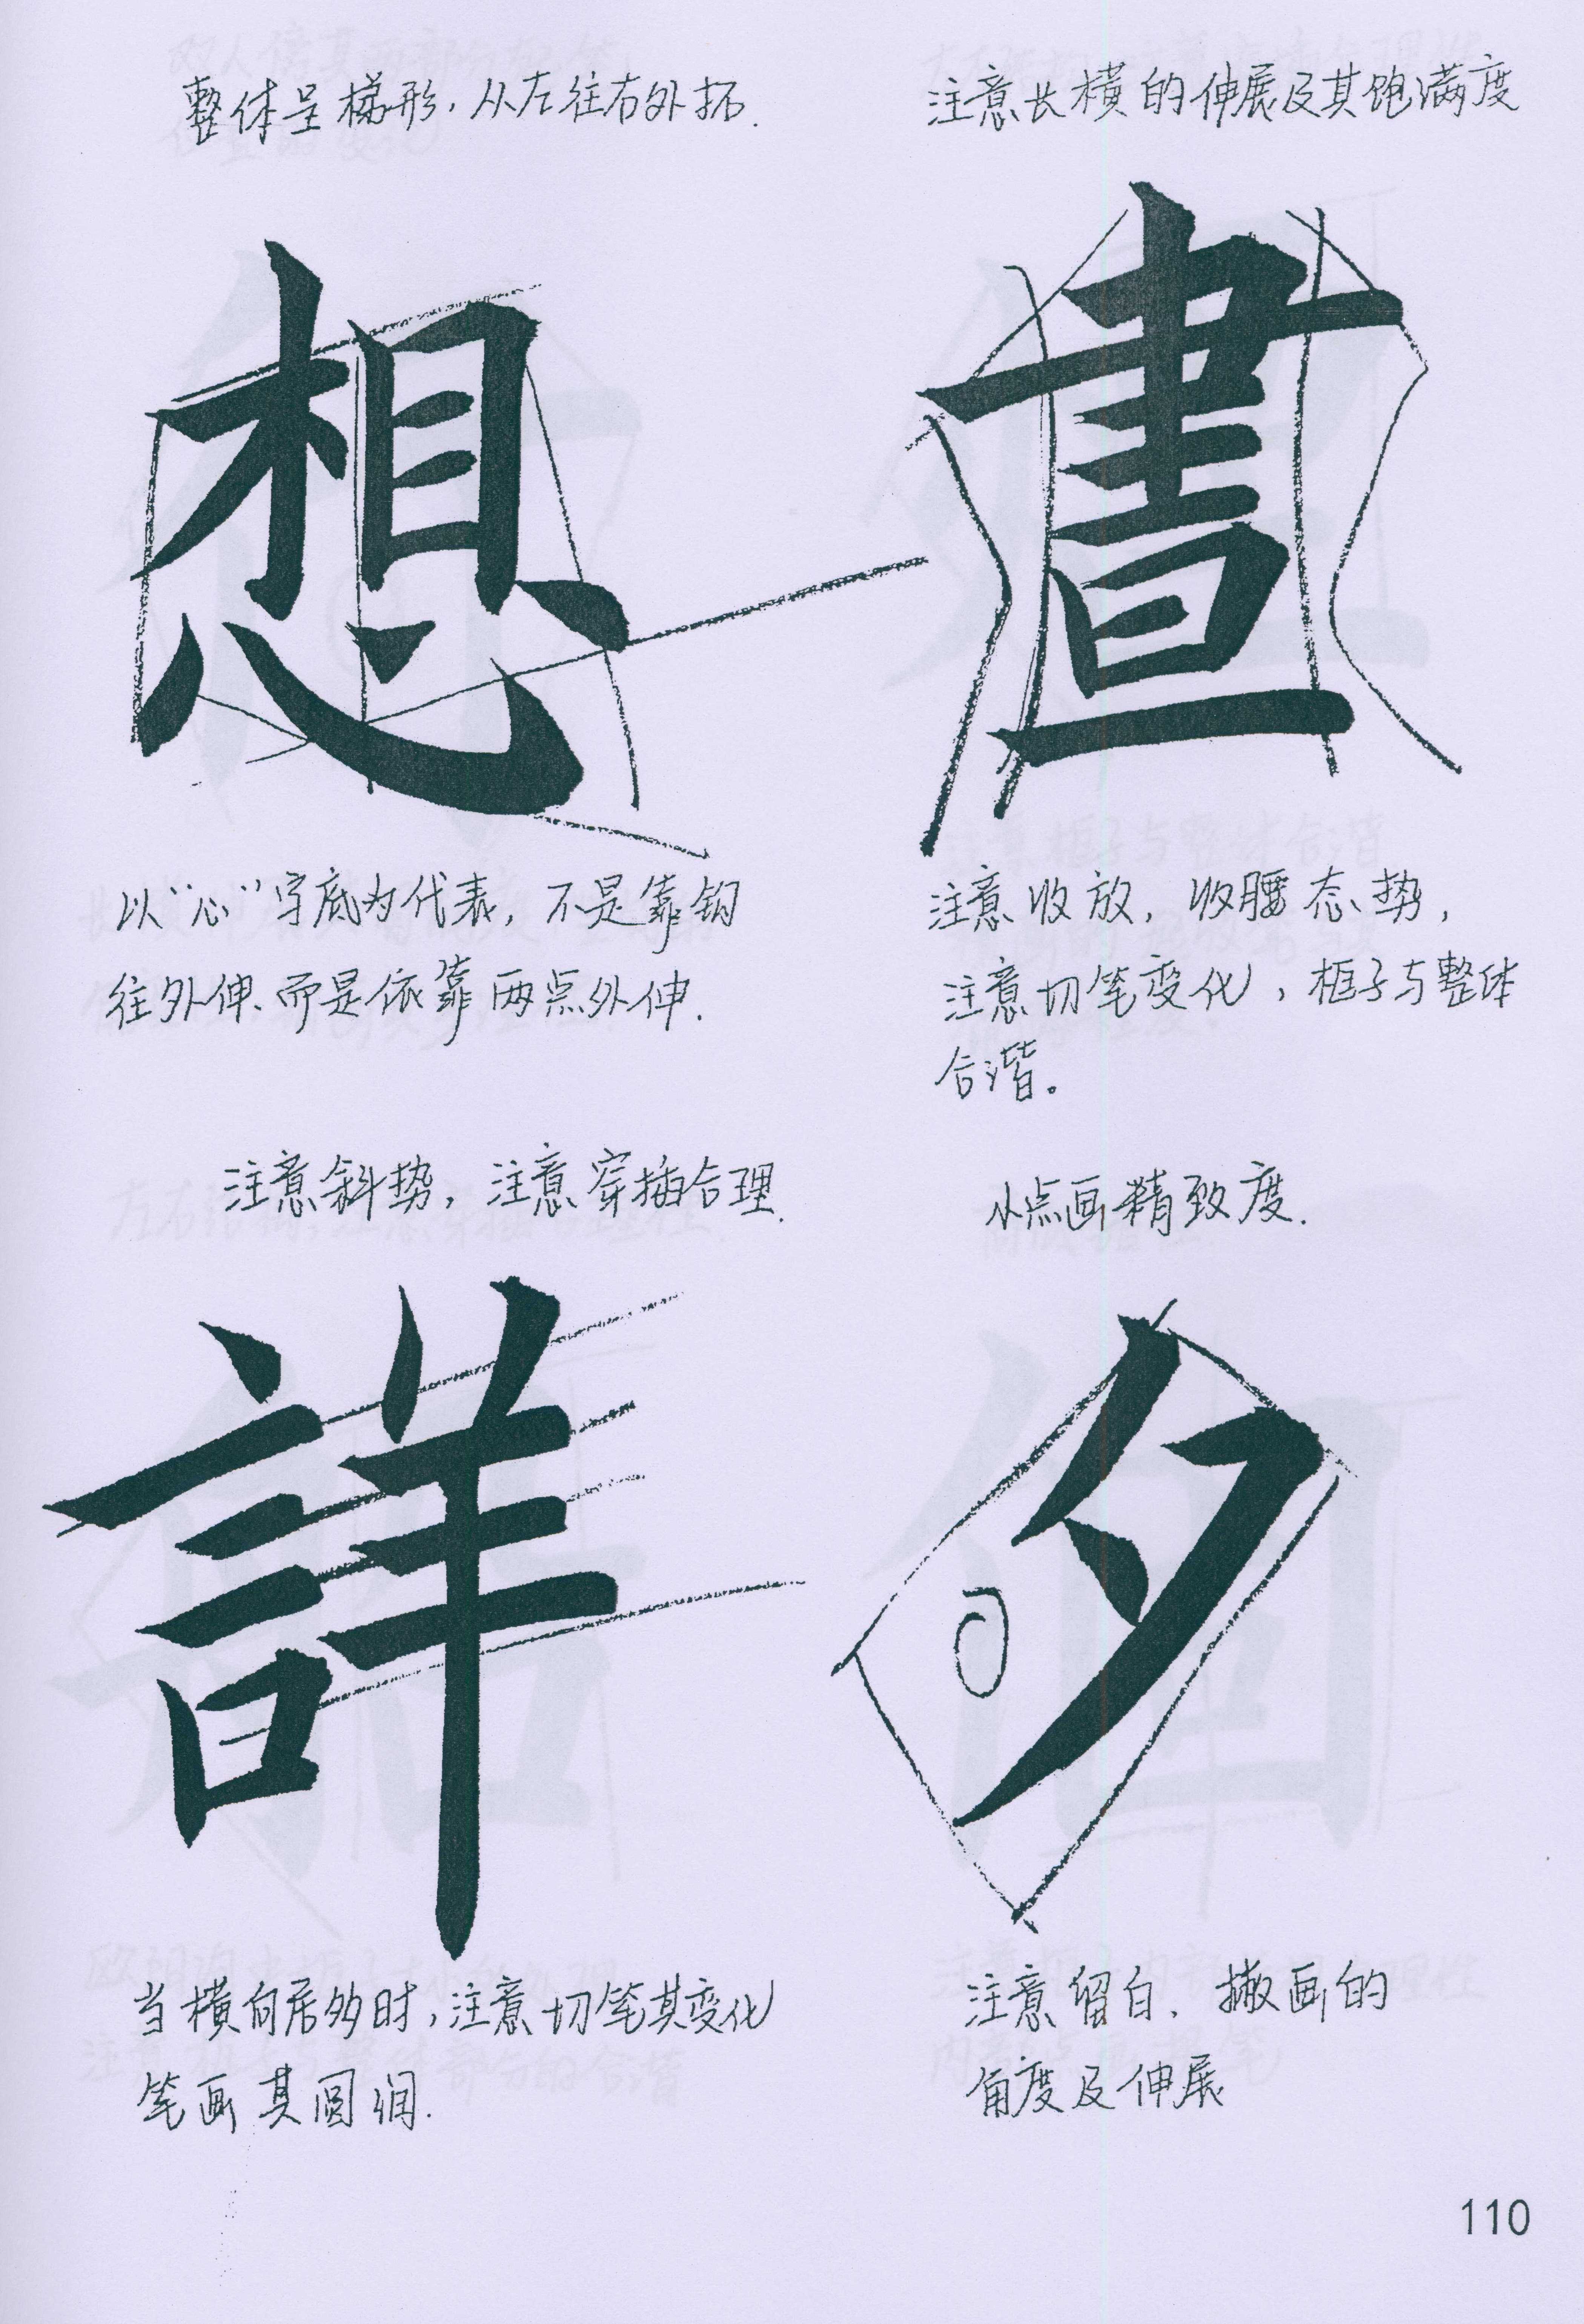 整体呈梯形，从左往右外拓.
想
以“心”字底为代表，不是靠钩
往外伸、而是依靠两点外伸.
注意长横的伸展及其饱满度
晝
注意收放，收腰态势，
注意切笔变化，框子与整体
合谐。
注意斜势，注意穿插合理.
詳
当横向居多时，注意切笔其变化
笔画其圆润.
小点画精致度.
夕
注意留白.撇画的
角度及伸展
110